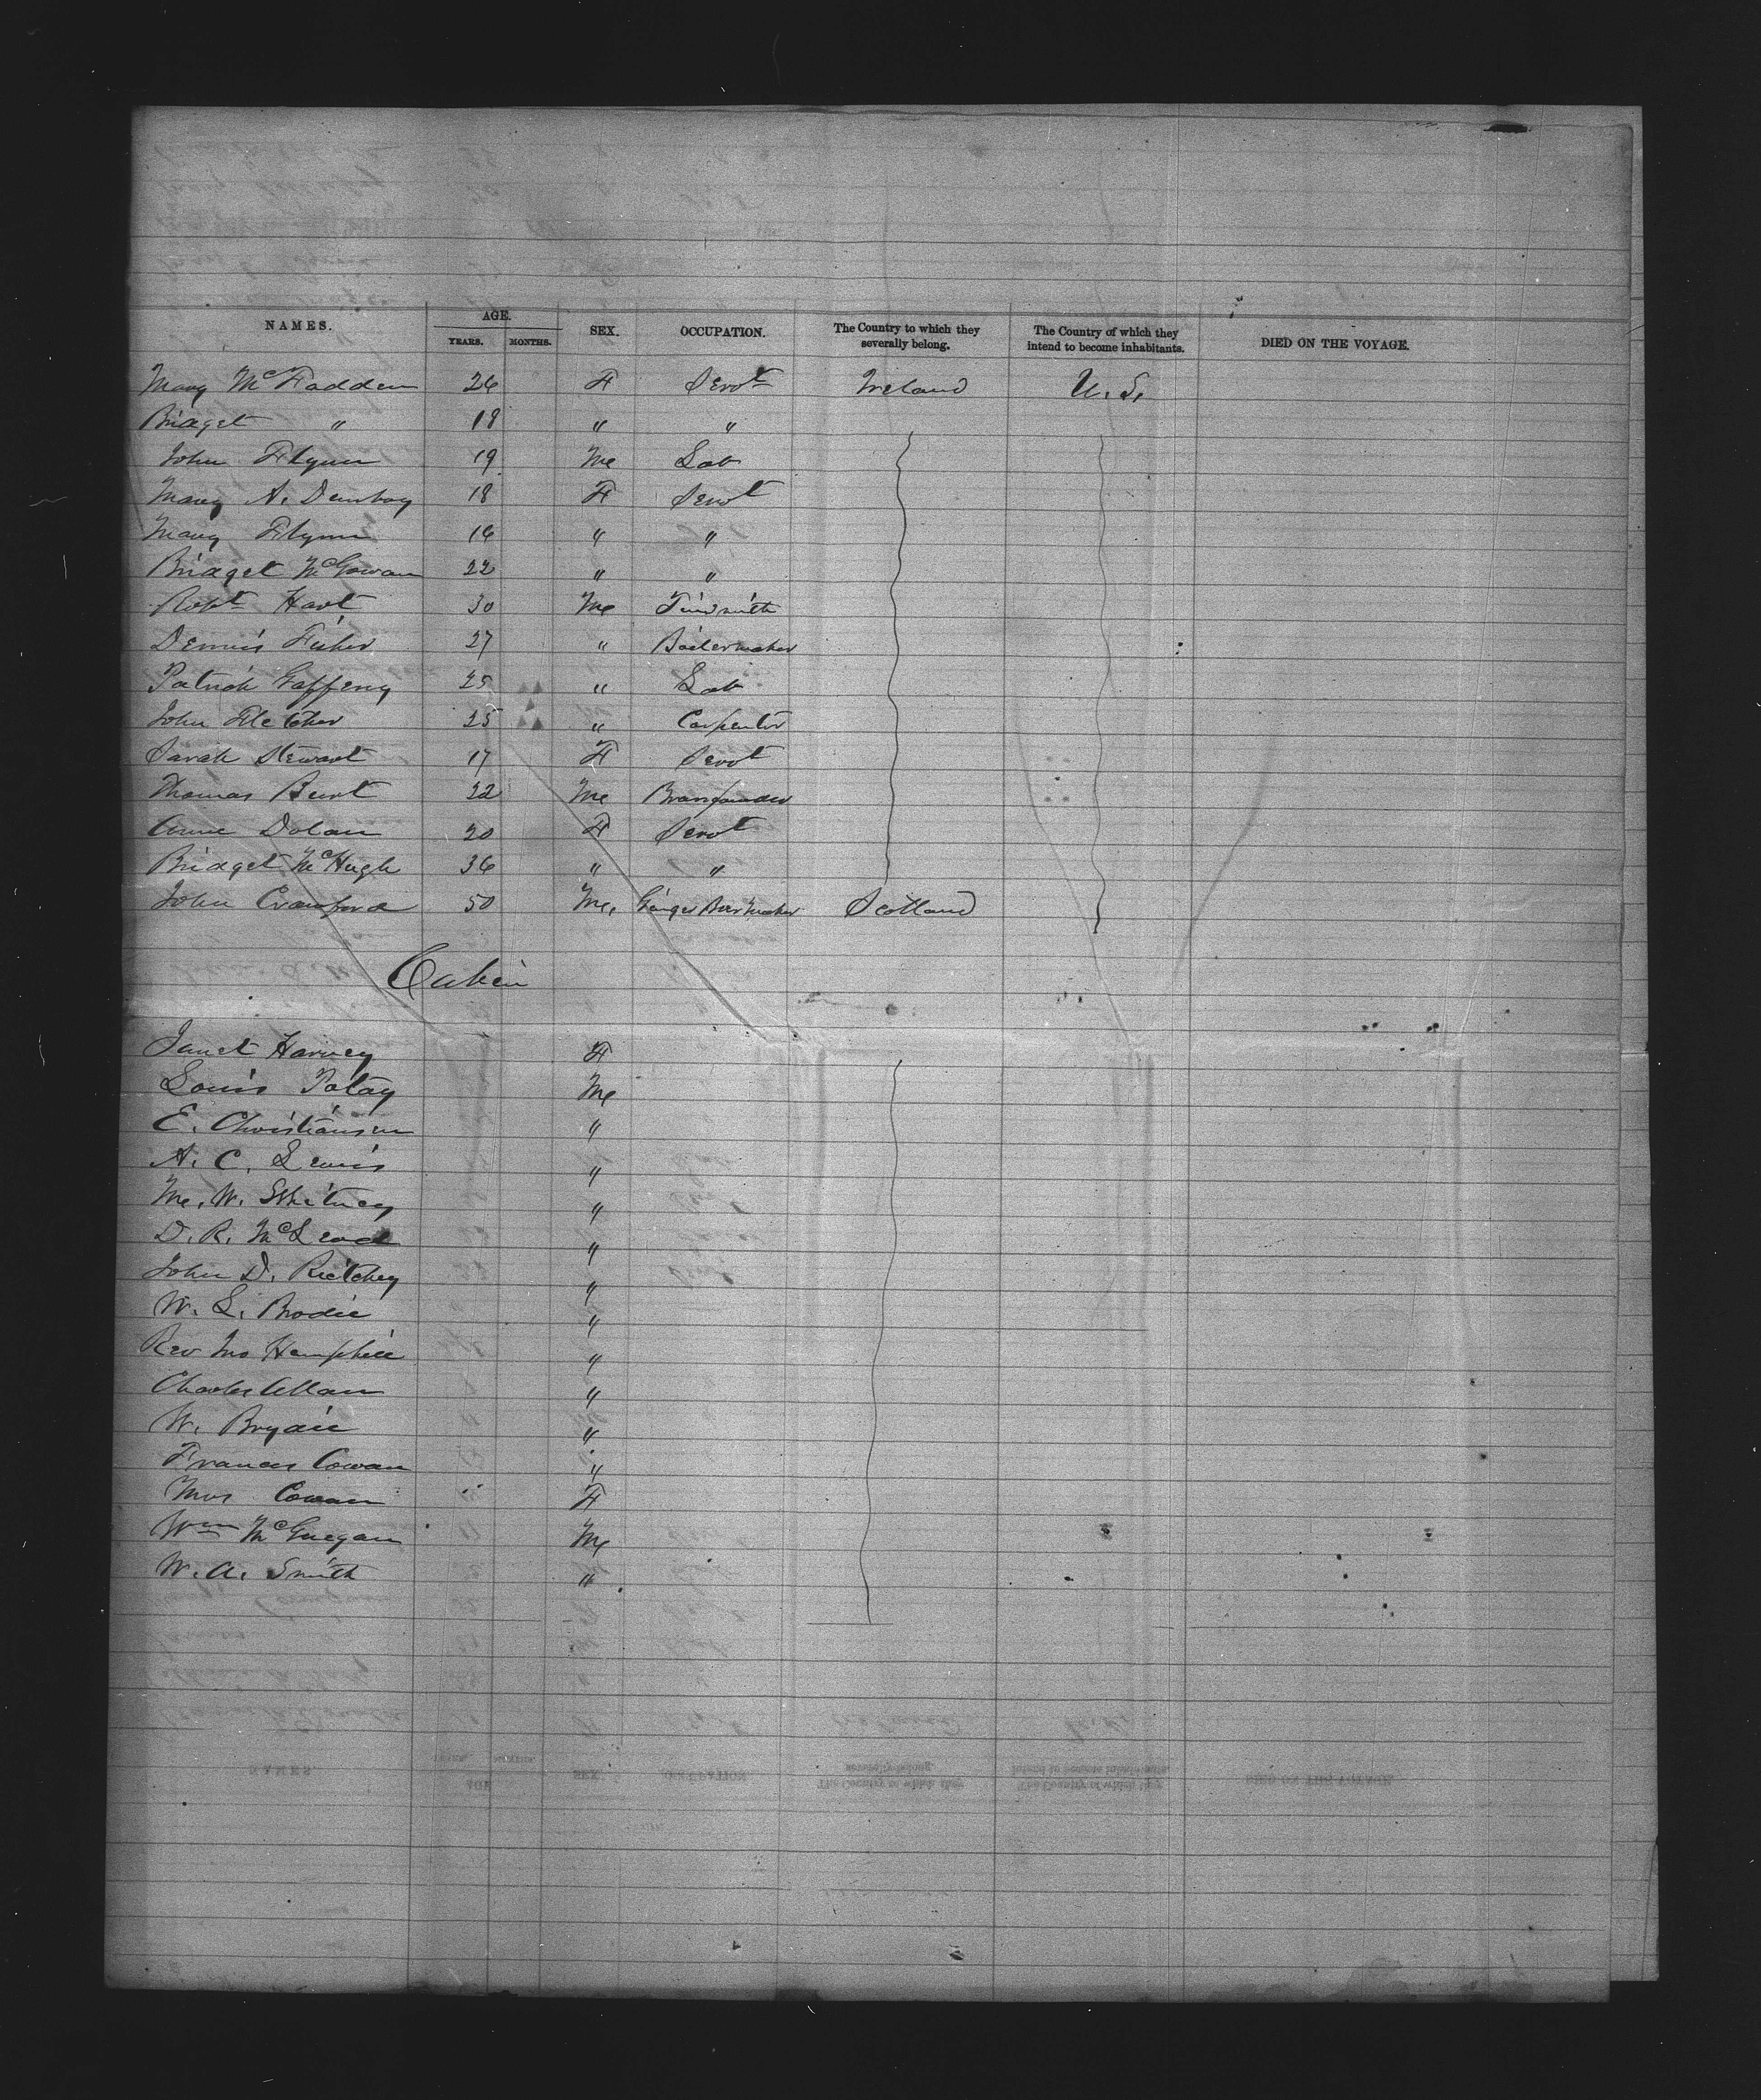 NAMES. AGE. YEARS. MONTHS. SEX. OCCUPATION. The Country to which they severally belong. The Country of which they intend to become inhabitants. DIED ON THE VOYAGE.
Mary McFadden 26 F Servt Ireland U.S.
Bridget " 18 " "
John Flynn 19 M Lab
Mary A. 18 F Servt
Mary Flynn 16 " "
Bridget McGowan 22 " "
Robt Hart 30 M Tinsmith
Dennis Fisher 27 " Boilermaker
Patrick Gaffeny 25 " Lab
John Fletcher 25 " Carpenter
Sarah Stewart 17 F Servt
Thomas Burt 22 M Brassfounder
Anne Dolan 20 F Servt
Bridget McHugh 36 " "
John Crawford 50 M. Ginger Beer Maker Scotland
Cabin
Janet Harvey F
Louis Patay M
E. Christiansen "
A. C. Lewis "
M. W. Whitney "
D. R. McLeod "
John D. Ritchey "
W. L. Brodie "
Rev Jno Hemphill "
Charles Allan "
W. "
Frances Cowan "
Mrs Cowan " F
Wm McGuegan M
W. A. Smith "